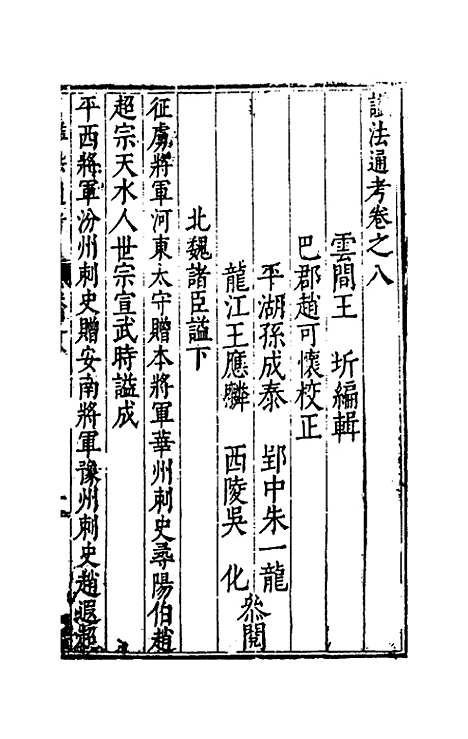 謚法通考卷之八
雲間王 圻編輯
巴郡趙可懷校正
平湖孫成泰 郢中朱一龍
龍江王應麟 西陵吳 化
叅閱
北魏諸臣謚下
征虜將軍河東太守贈本將軍華州刺史尋陽伯趙
超宗天水人世宗宣武時謚成
平西將軍汾州刺史贈安南將軍豫州刺史趙遐超